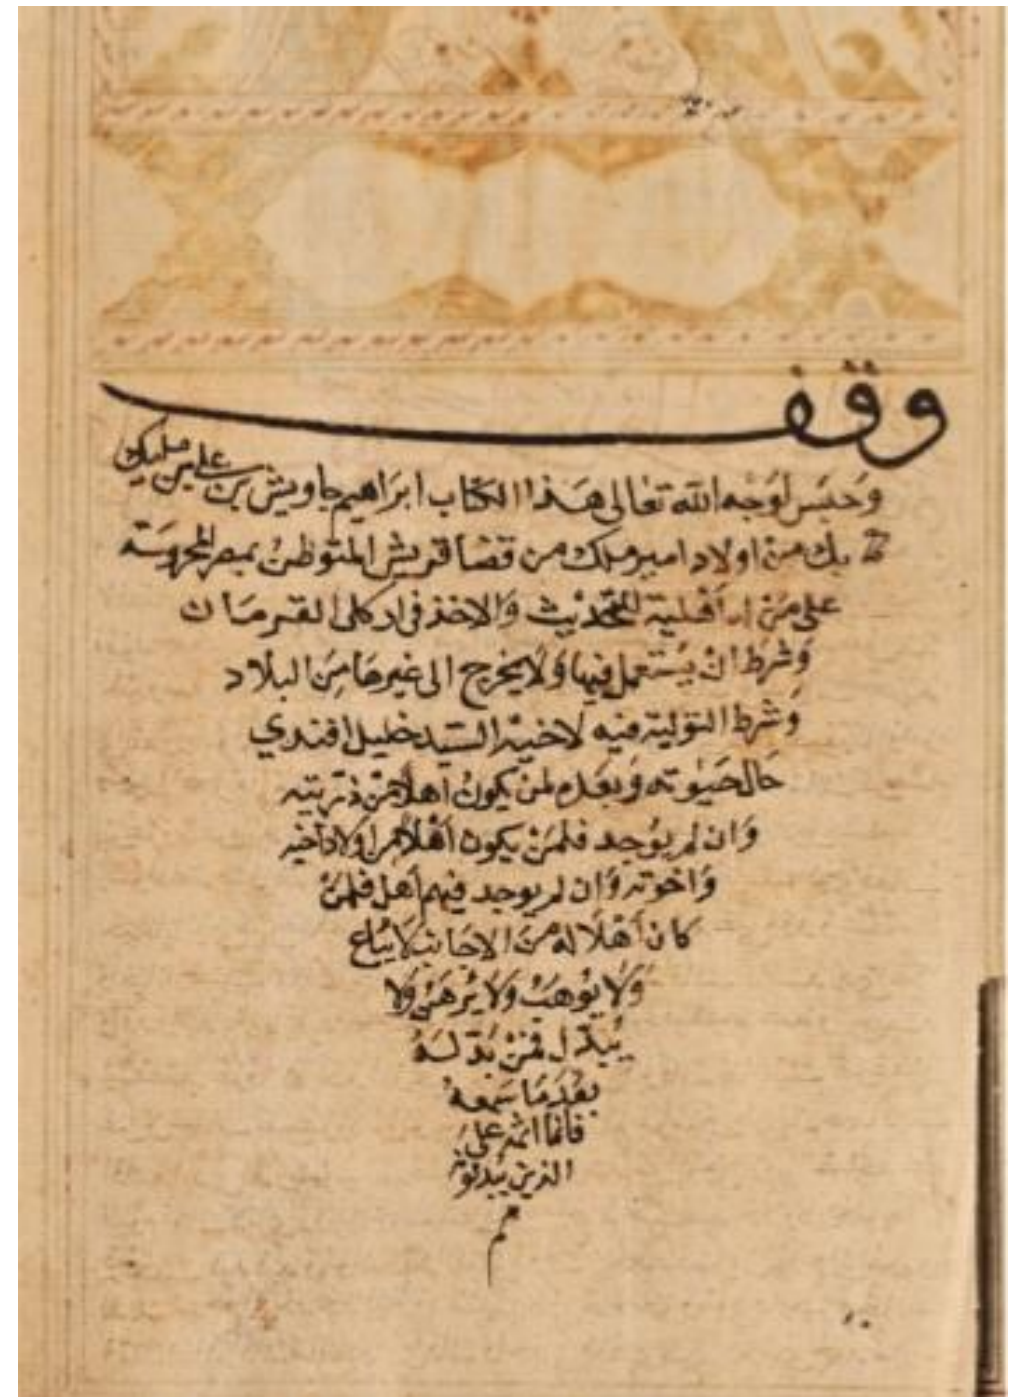 وقف
وَحبَس لوَجْه الله تعالى هَذا الكتاب ابرَاهيم جاويش بن علي بن
بك من اولاد امير ملك من قضا المتوطن بمصر المحروسَة
على مَنْ له أهْلية التحديث وَالاخذ في اركلي القرمَان
وَشَرط انْ يُسْتعمل فيها وَلَا يخرج الى غيرهَا مِنَ البلاد
وَشَرط التولية فيه لاخيه السَّيد خليل افندي
حَال حَيٰوته وَبعَده لمنْ يكونُ أهلاً منْ ذرّيته
وَان لم يُوجد فلمَنْ يكون أهْلاً من اولاد أخيه
وَاخوته وَان لم يوجد فيهم أهل فلمَنْ
كان أهْلاً له منَ الاجانب لَا يُبَاع
وَلَا يُوهَبْ وَلَا يُرهَنْ وَلَا
يُبدّل فمَنْ بَدّلَهُ
بَعْدَمَا سَمعهُ
فانما اثمه عَلى
الذين يُبدّلونَه
تم